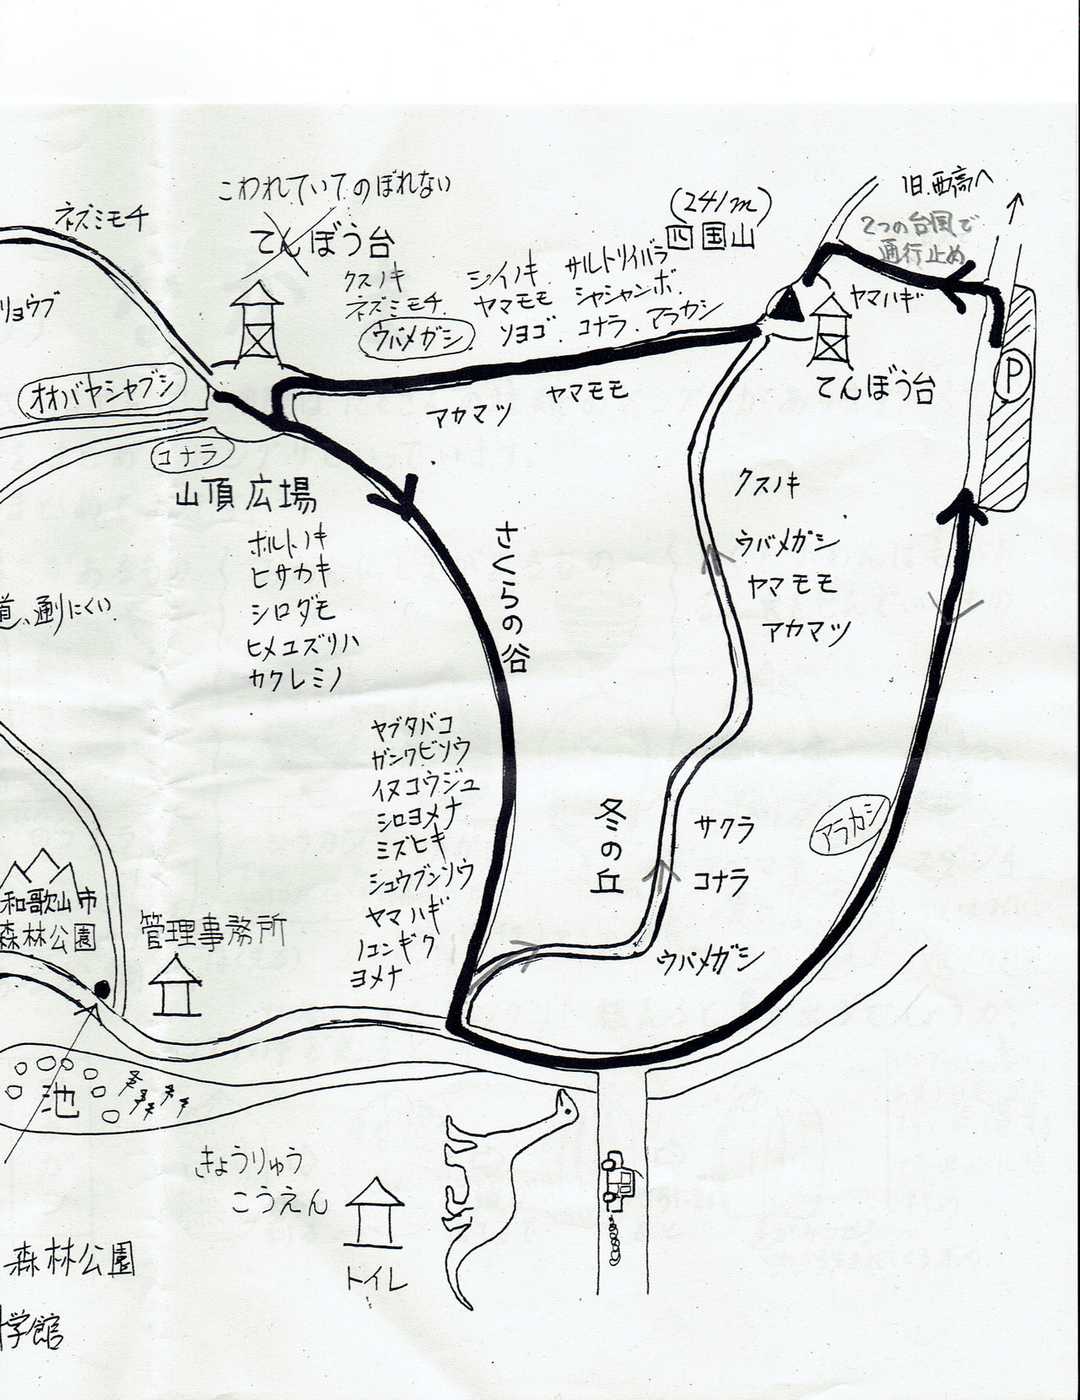 こわれていて のぼれない
てんぼう台
ネズミモチ
(241m)
四国山
旧西高へ
2つの台風で
通行止め
クスノキ
ネズミモチ
ウバメガシ
シイノキ
ヤマモモ
ソヨゴ
サルトリイバラ
シャシャンボ
コナラ
アラカシ
ヤマハギ
P
てんぼう台
リョウブ
オオバヤシャブシ
コナラ
アカマツ
ヤマモモ
山頂広場
ホルトノキ
ヒサカキ
シロダモ
ヒメユズリハ
カクレミノ
さくらの谷
クスノキ
ウバメガシ
ヤマモモ
アカマツ
道、通りにくい
ヤブタバコ
ガンクビソウ
イヌコウジュ
シロヨメナ
ミズヒキ
シュウブンソウ
ヤマハギ
ノコンギク
ヨメナ
冬の丘
サクラ
コナラ
ウバメガシ
アラカシ
和歌山市
森林公園
管理事務所
池
きょうりゅう
こうえん
トイレ
森林公園
学館